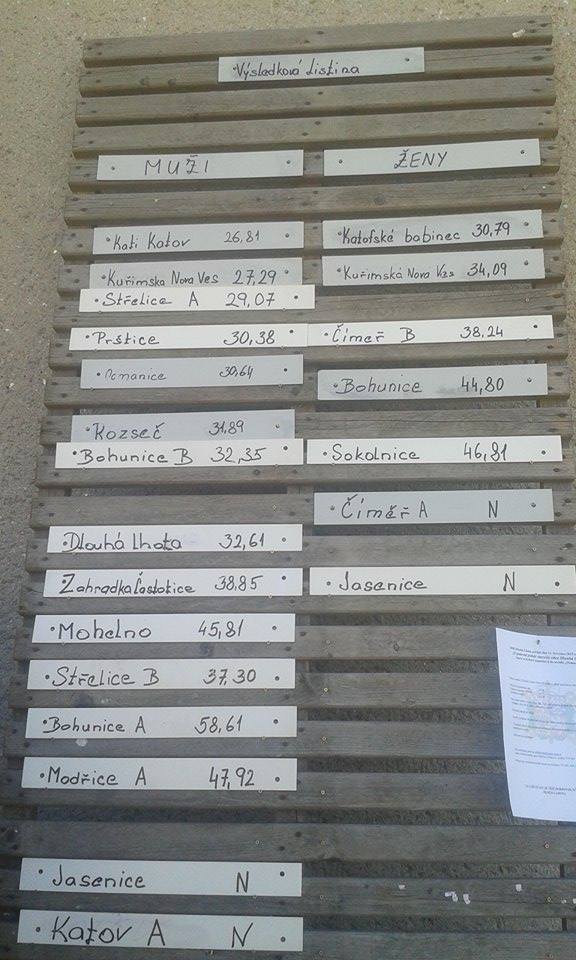 Výsledková listina
MUŽI
ŽENY
Kati Katov 26,81
Katofské babinec 30,79
Kuřimska Nova Ves 27,29
Kuřimská Nova Ves 34,09
Střelice A 29,07
Prštice 30,38
Číměř B 38,24
Domanice 30,64
Bohunice 44,80
Kozseč 31,89
Bohunice B 32,35
Sokolnice 46,81
Číměř A N
Dlouhá Lhota 32,61
Zahradka Častotice 38,85
Jasenice N
Mohelno 45,81
Střelice B 37,30
Bohunice A 58,61
Modřice A 47,92
Jasenice N
Katov A N